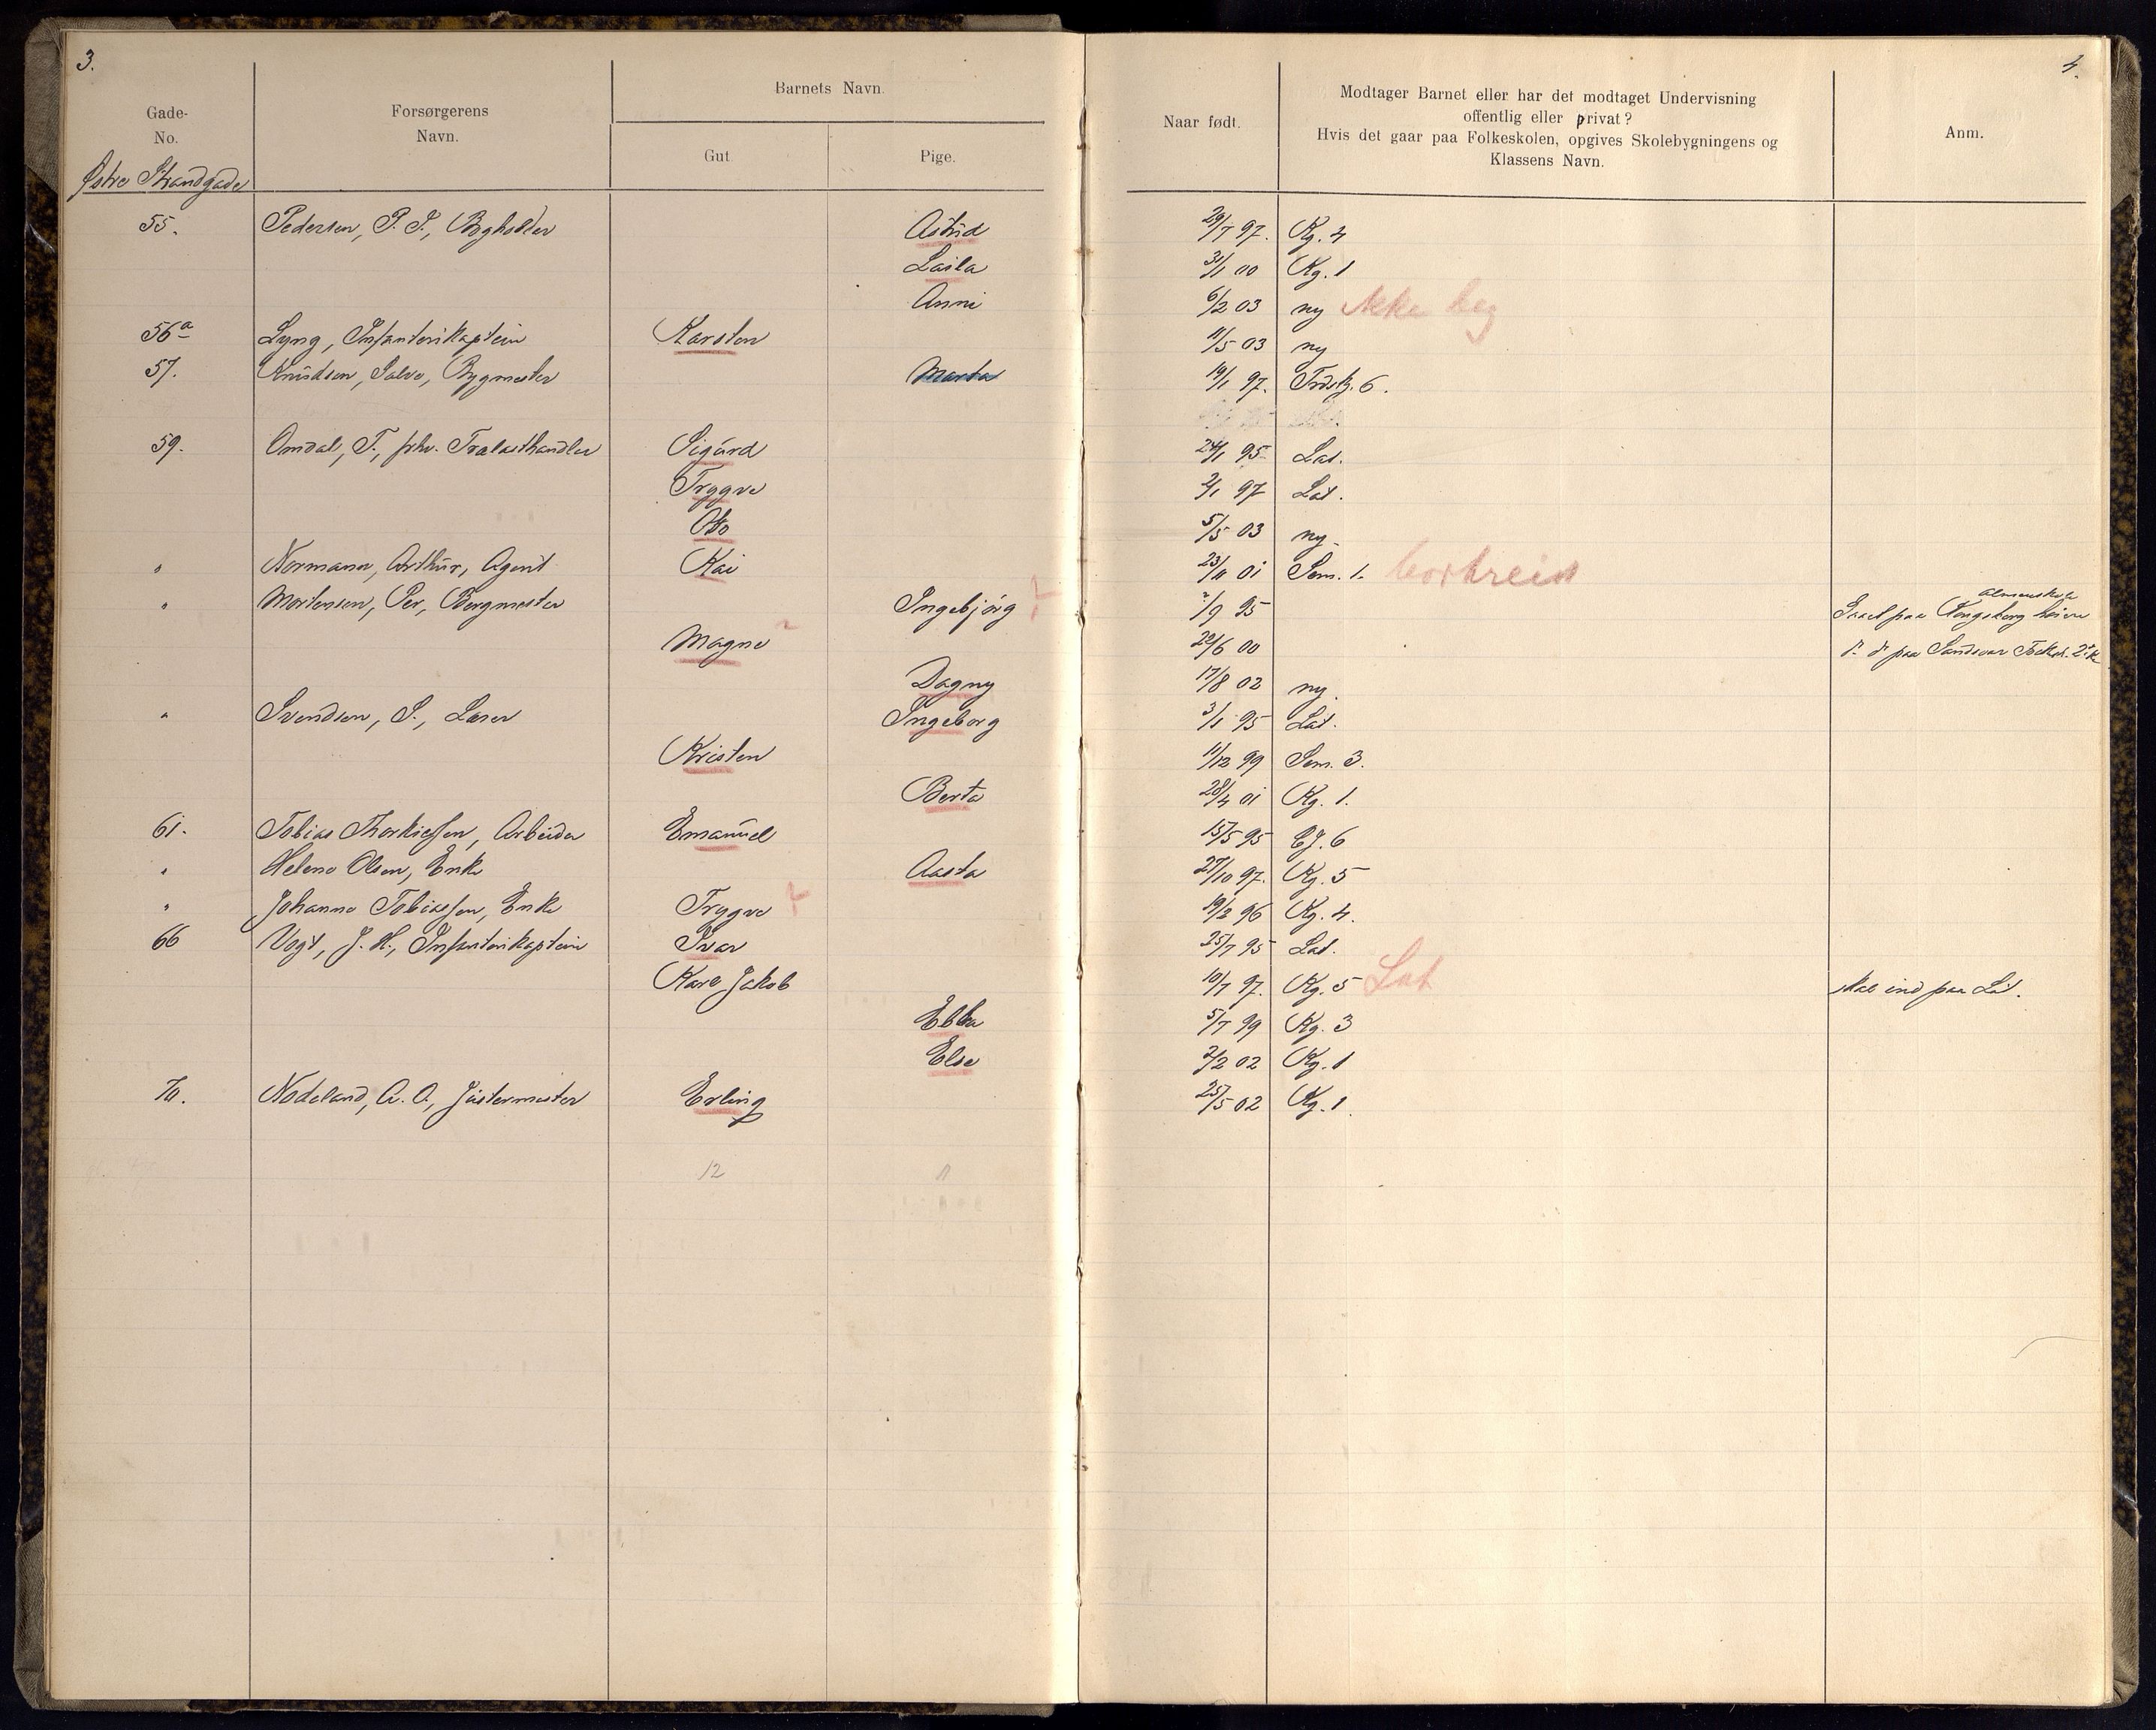 3.
4.
Gade-
No.
Forsørgerens
Navn.
Barnets Navn.
Gut
Pige.
Naar født.
Modtager Barnet eller har det modtaget Undervisning
offentlig eller privat?
Hvis det gaar paa Folkeskolen, opgives Skolebygningens og
Klassens Navn.
Anm.
Østre Strandgade
55. Pedersen, P. P., Bogholder Astrid 29/7 97. Kg. 4
Laila 31/1 00 Kg. 1
Anni 6/2 03 ny Ikke beg
56a Lyng, Infanterikaptein Karsten 11/5 03 ny
57. Knudsen, Salve, Bygmester Marta 19/1 97. Trdsk. 6.
59. Omdal, T., fhv. Trælasthandler Sigurd 24/1 95 Lat.
Trygve 2/1 97 Lat.
Otto 5/5 03 ny.
" Normann, Arthur, Agent Kai 23/11 01 Sem. 1. bortreist
" Mortensen, Per, Bergmester Ingebjörg ? ?/9 95 Gaaet paa Kongsberg høiere almenskole
Magne ? 29/6 00 d. d. paa Sandsvær Folksk. 2. k
Dagny 17/8 02 ny.
" Svendsen, S., Læser Ingeborg 3/1 95 Lat.
Kristen 11/12 99 Sem. 3.
Berta 28/4 01 Kg. 1.
61. Tobias Thorkiessen, Arbeider Emanuel 15/5 95 6
" Helene Olsen, Enke Aasta 27/10 97. Kg. 5
" Johanne Tobiassen, Enke Trygve ? 19/2 96 Kg. 4.
66 Vogt, J. H., Infanterikaptein Ivar 25/7 95 Lat.
Karl Jakob 10/7 97. Kg. 5 Lat skal ind paa Lat.
Ebba 5/7 99 Kg. 3
Else 2/2 02 Kg. 1
70. Nodeland, A. O., Justermester Erling 25/5 02 Kg. 1.
12 11